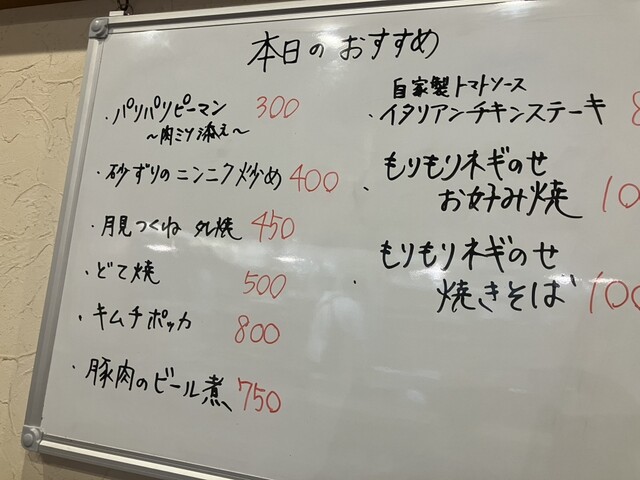 本日のおすすめ
・パリパリピーマン 300
〜肉ミソ添え〜
・砂ずりのニンニク炒め 400
・月見つくね タレ焼 450
・どて焼 500
・キムチポッカ 800
・豚肉のビール煮 750
自家製トマトソース
・イタリアンチキンステーキ
・もりもりネギのせ
お好み焼
・もりもりネギのせ
焼きそば